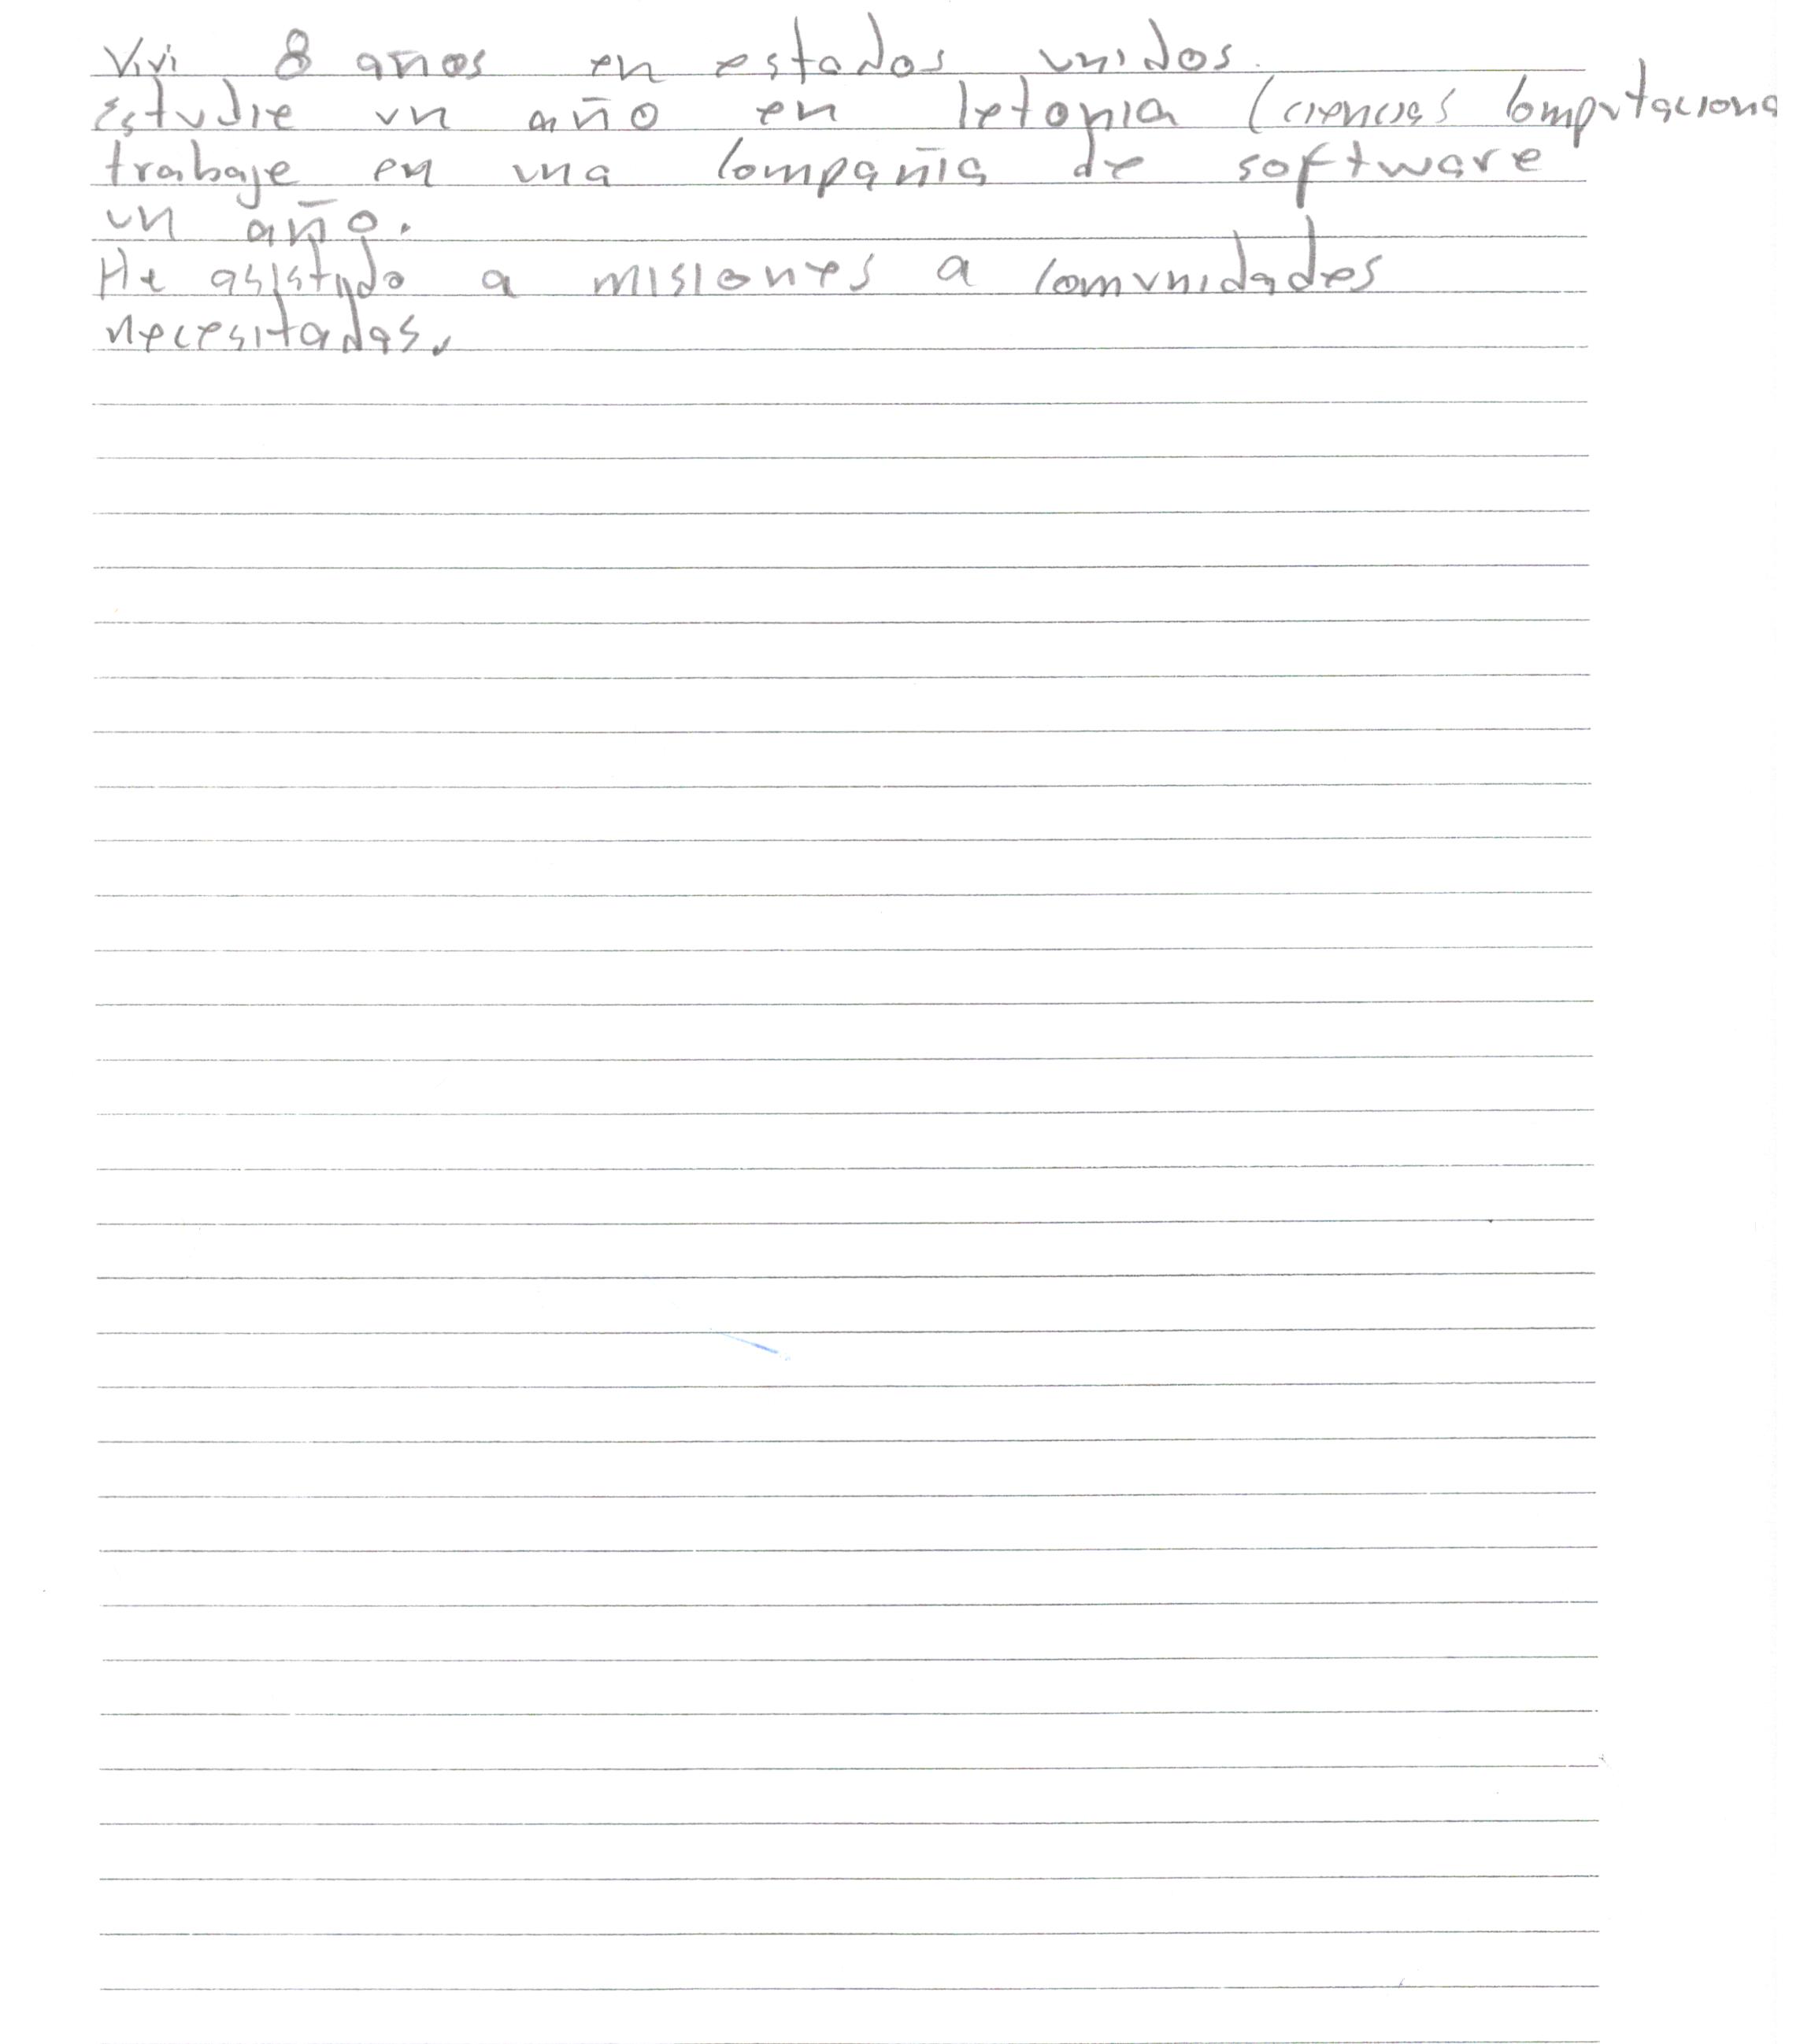 Vivi 8 años en estados unidos.
Estudie un año en letonia (ciencias computaciona
trabaje en una compañia de software
un año.
He asistido a misiones a comunidades
necesitadas.